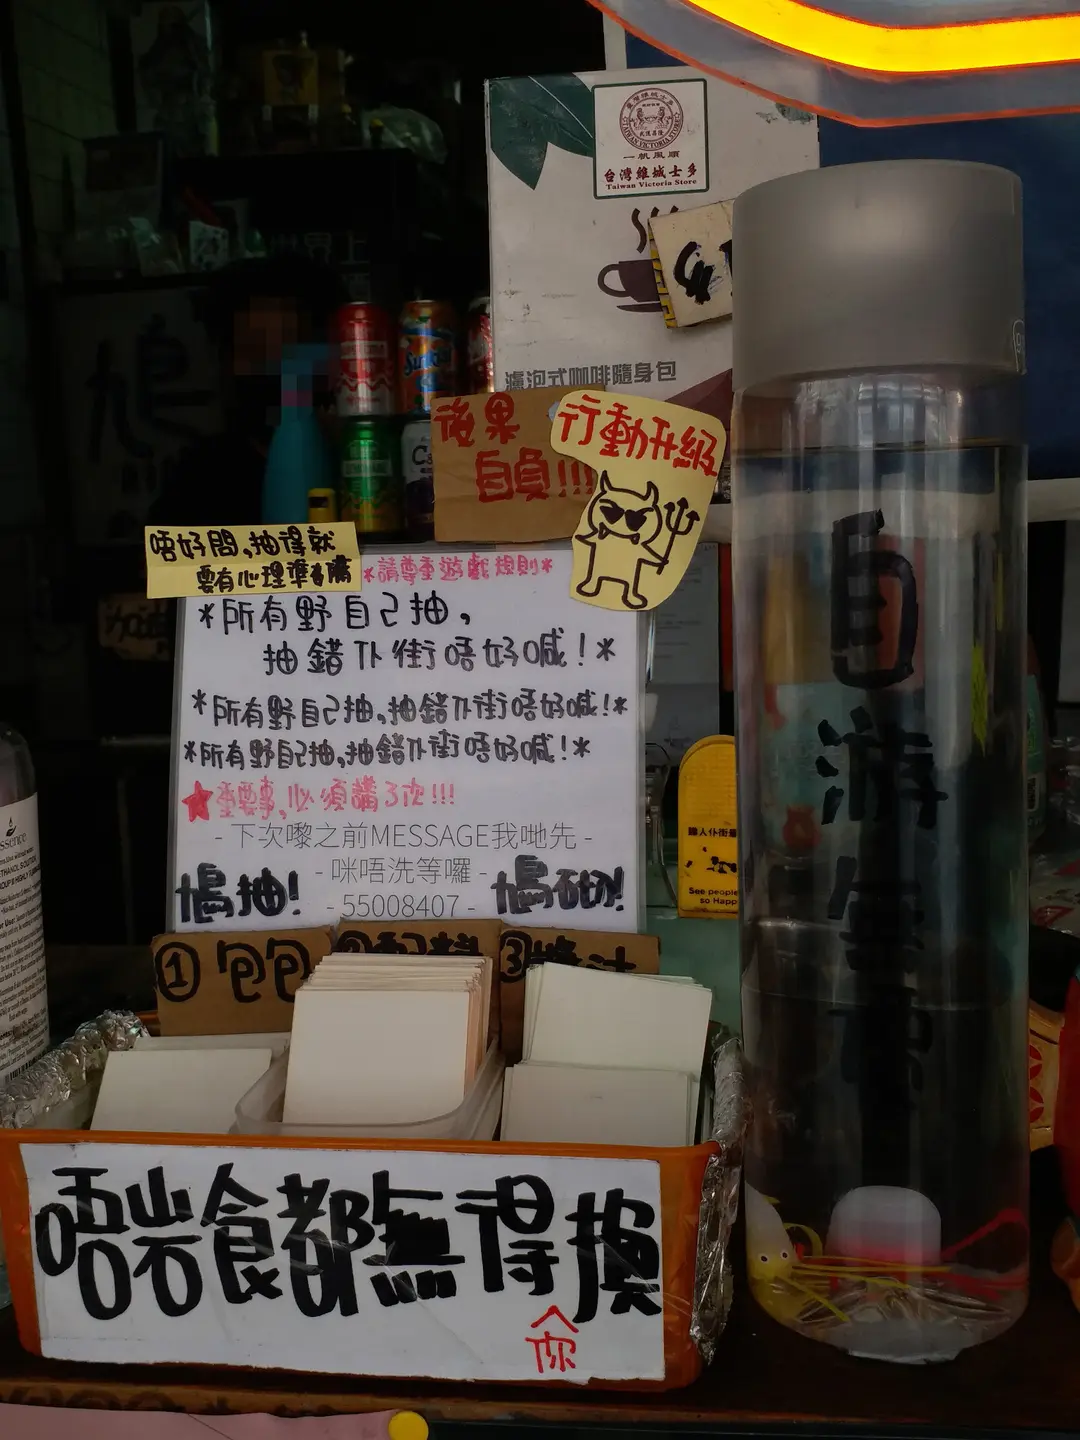 一帆風順
台灣維城士多
Taiwan Victoria Store
濾泡式咖啡隨身包
後果
自負!!!
行動升級
唔好問,抽得就
要有心理準備
*請尊重遊戲規則*
*所有野自己抽,
抽錯仆街唔好喊!*
*所有野自己抽,抽錯仆街唔好喊!*
*所有野自己抽,抽錯仆街唔好喊!*
★重要事,必須講3次!!!
- 下次嚟之前MESSAGE我哋先 -
- 咪唔洗等囉 -
- 55008407 -
鳩抽!
鳩切!
讓人仆街
See people
so Happ
①包包
②配料
③醬汁
唔岩食都無得換
你
自
游
世界上
Sunkist